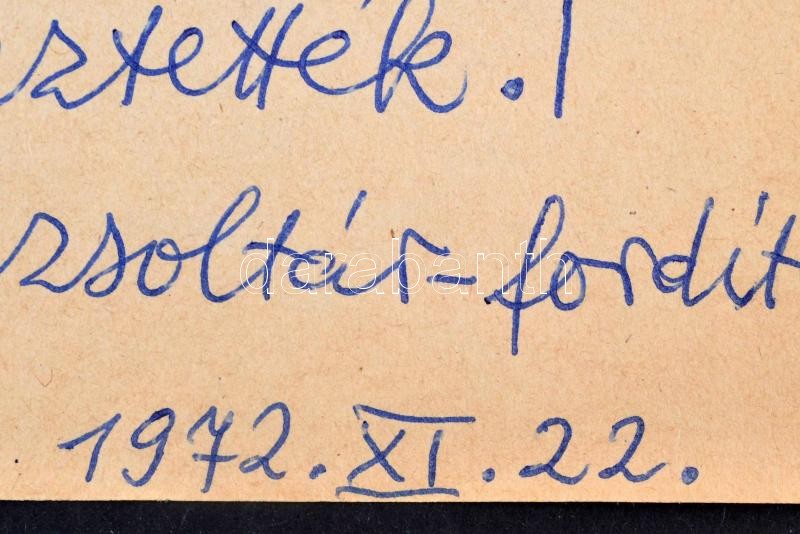 sztették.)
zsoltár-fordít
1972. XI. 22.
darabanth